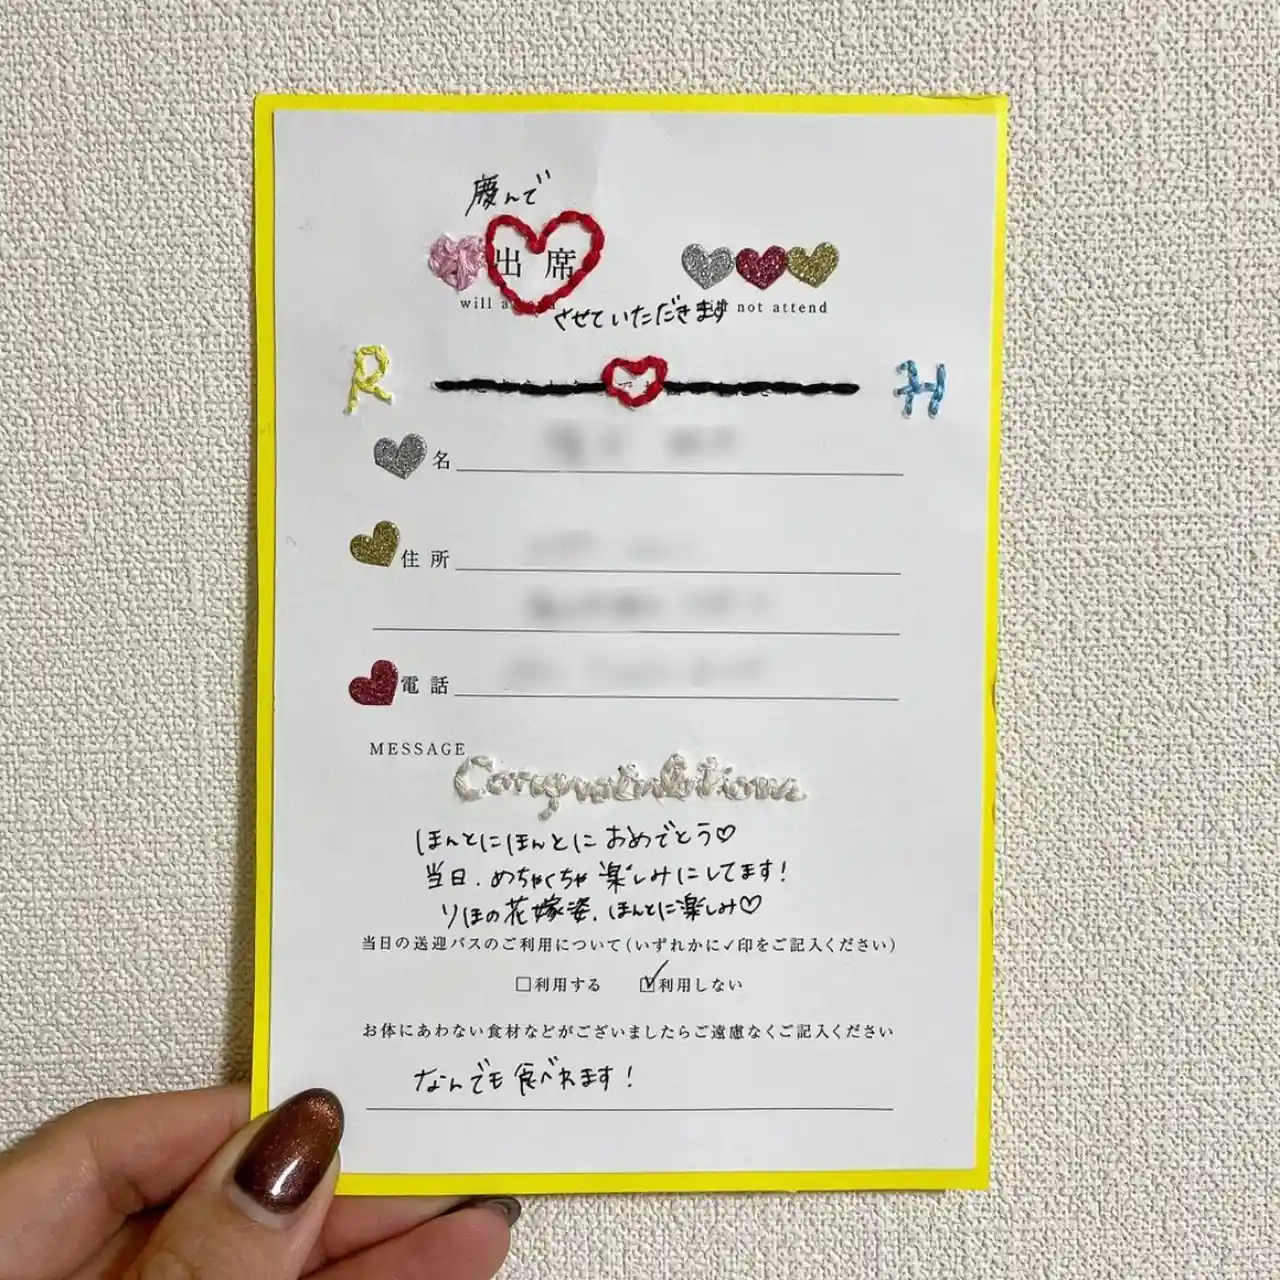 慶んで
出席
will a
させていただきます
not attend
R
H
名
住所
電話
MESSAGE
Congratulations
ほんとにほんとにおめでとう♡
当日、めちゃくちゃ楽しみにしてます!
りほの花嫁姿、ほんとに楽しみ♡
当日の送迎バスのご利用について(いずれかに✓印をご記入ください)
□利用する ☑利用しない
お体にあわない食材などがございましたらご遠慮なくご記入ください
なんでも食べれます!